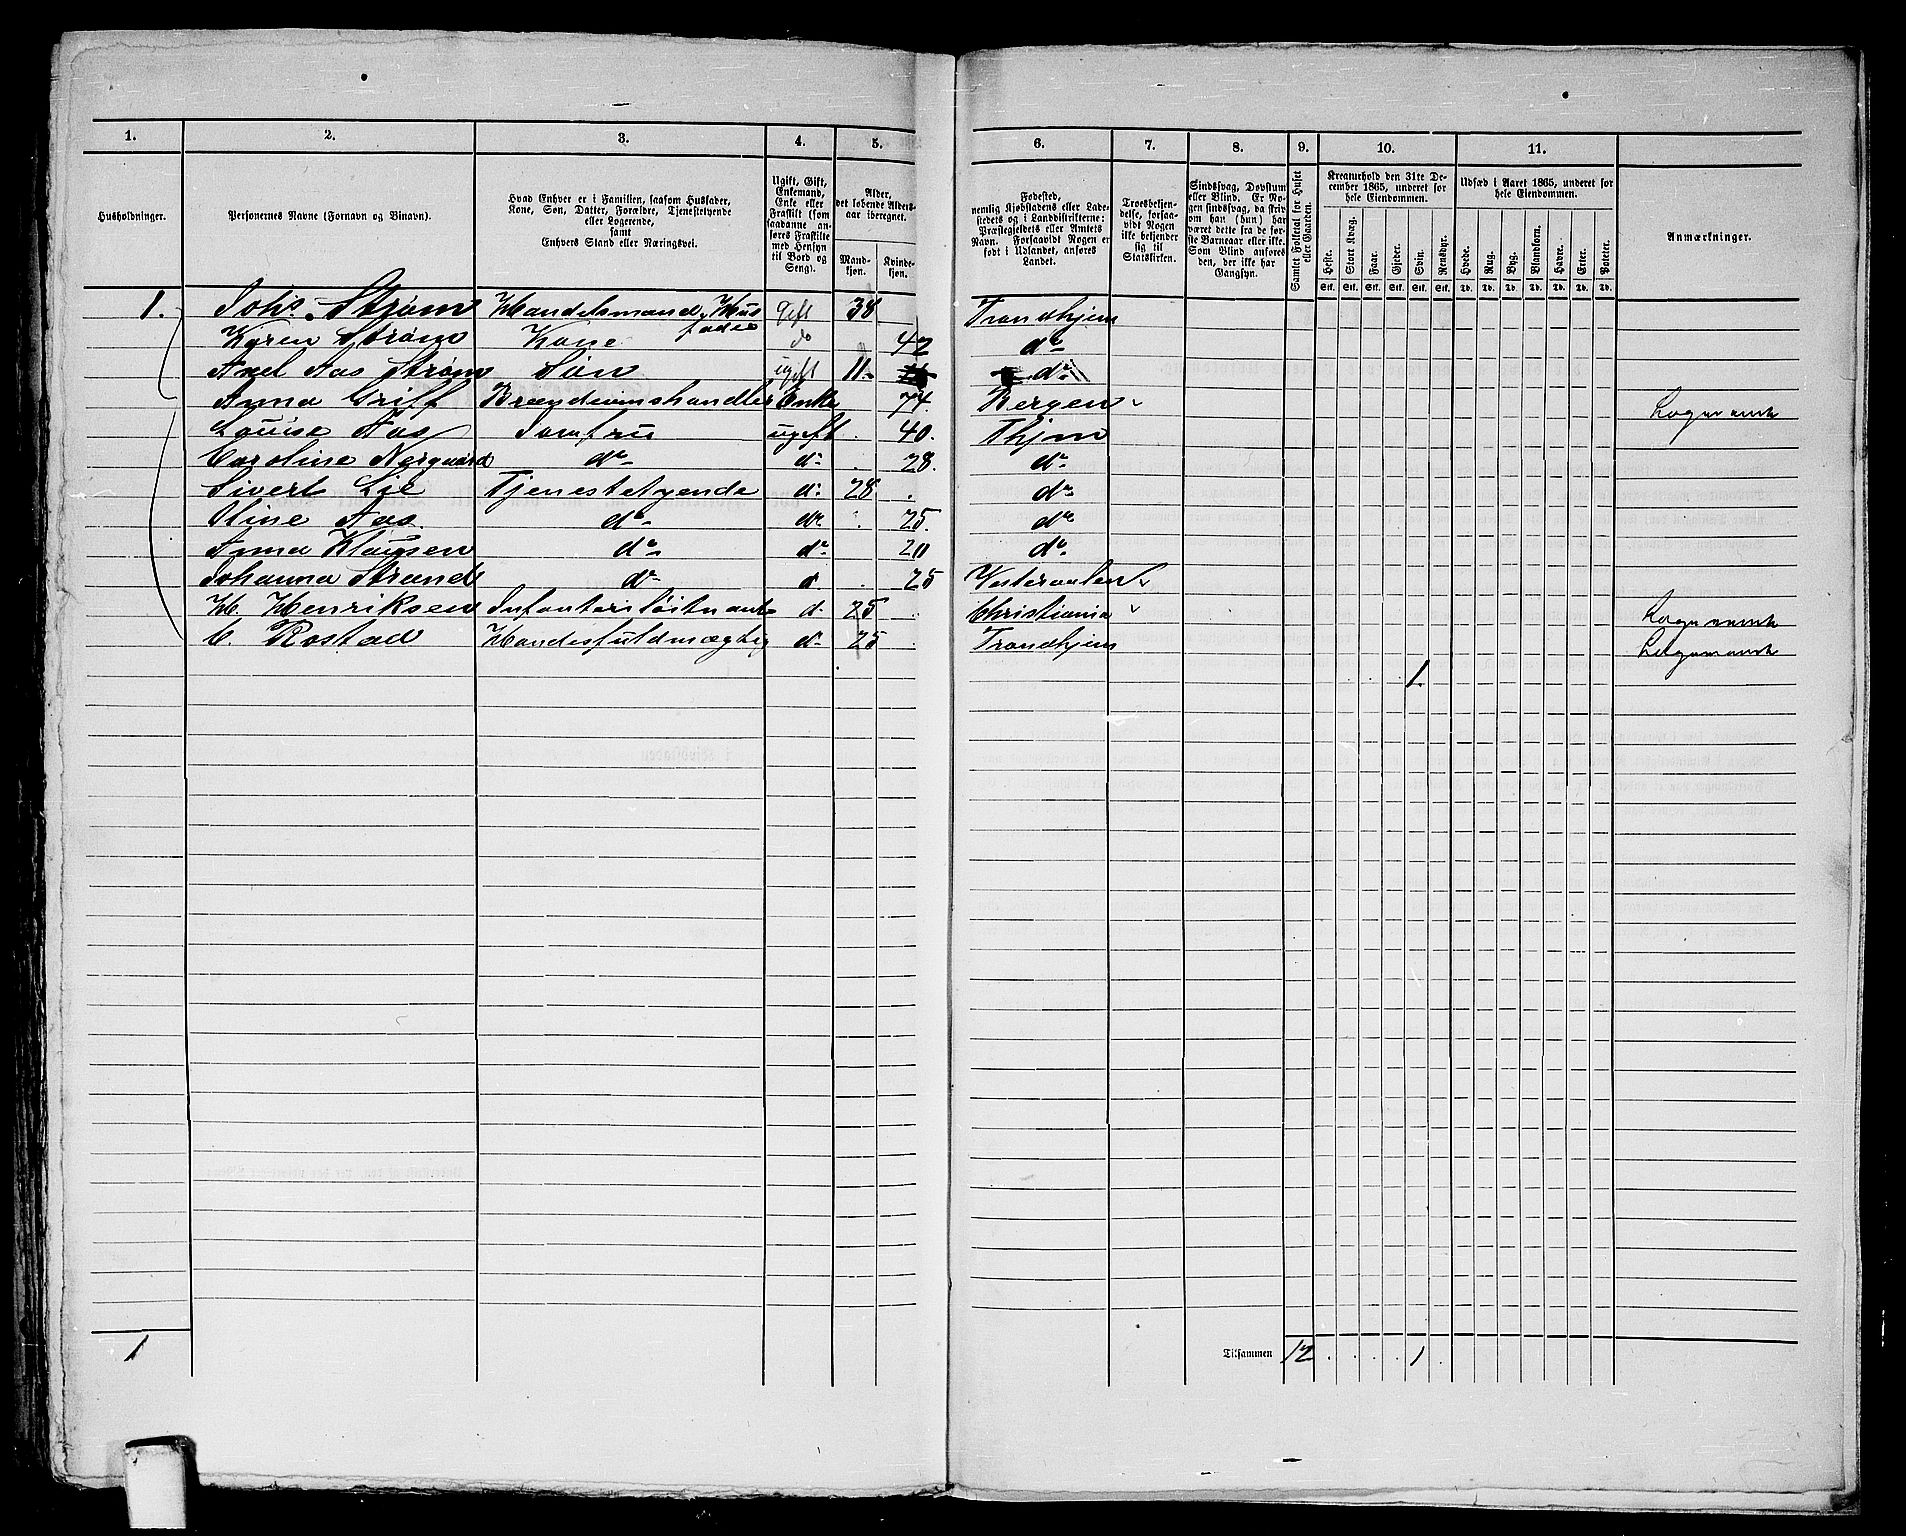 1. 2. 3. 4. 5. 6. 7. 8. 9. 10. 11.
Husholdninger.
Personernes Navne (Fornavn og Binavn).
Hvad Enhver er i Familien, saasom Husfader,
Kone, Søn, Datter, Forældre, Tjenestetyende
eller Logerende,
samt
Enhvers Stand eller Næringsvei.
Ugift, Gift,
Enkemand,
Enke eller
Fraskilt (som
saadanne an-
føres Fraskilte
med Hensyn
til Bord og
Seng).
Alder,
det løbende Alders-
aar iberegnet.
Mand-
kjøn.
Kvinde-
kjøn.
Fødested,
nemlig Kjøbstadens eller Lade-
stedets og i Landdistrikterne:
Præstegjeldets eller Amtets
Navn. Forsaavidt Nogen er
født i Udlandet, anføres
Landet.
Troesbekjen-
delse, forsaa-
vidt Nogen
ikke bekjender
sig til
Statskirken.
Sindssvag, Døvstum
eller Blind. Er No-
gen sindssvag, da skriv
om han (hun) har
været dette fra de før-
ste Barneaar eller ikke.
Som Blind anføres
den, der ikke har
Gangsyn.
Samlet Folketal for Huset
eller Gaarden.
Kreaturhold den 31te De-
cember 1865, underet for
hele Eiendommen.
Heste. Stort Kvæg. Faar. Gjeder. Svin. Rensdyr.
Stk. Stk. Stk. Stk. Stk. Stk.
Udsæd i Aaret 1865, underet for
hele Eiendommen.
Hvede. Rug. Byg. Blandkorn. Havre. Erter. Poteter.
Td. Td. Td. Td. Td. Td. Td.
Anmærkninger.
1. Johs. Strøm Handelsmand, Hus gift 38 Trondhjem
fader
Karen Strøm Kone do 42 do
Axel Aas Strøm Søn ugift 11. do
Anna Griff Brændevinshandler Enke 74. Bergen Logerende
Louise Aas Jomfru ugift 40. Thjem
Caroline Nergaard do d 28. do
Sivert Lie Tjenestetyende d 28 do
Oline Aas do do 25. do
Anna Klausen do d 20 do
Johanna Strand do d 25 Vesteraalen
H. Henriksen Infanteriløitnant d 25 Christiania Logerende
C. Rostad Handesfuldmægtig d 25 Trondhjem Logerende
1.
1 Tilsammen 12 1